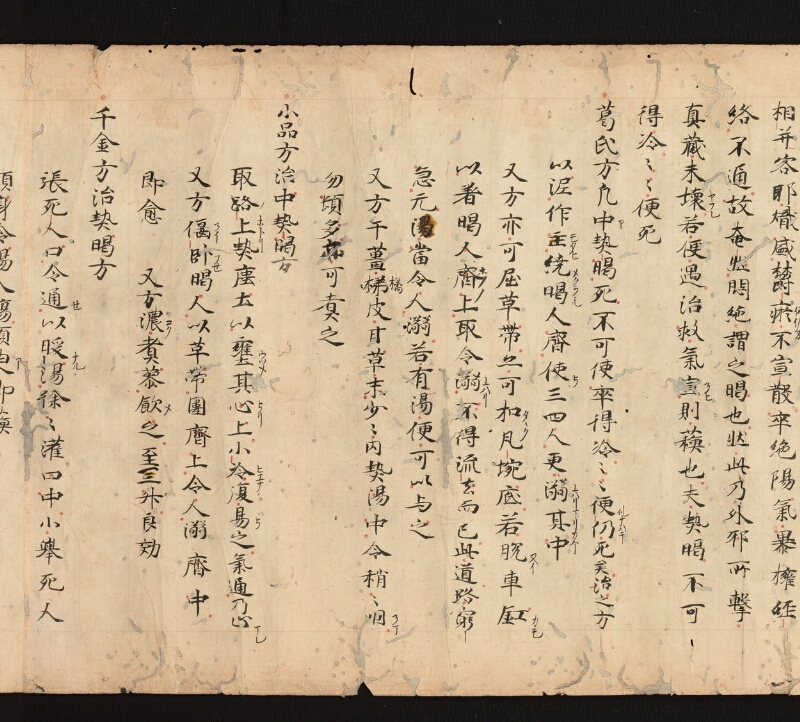 相并客耶熾盛欝瘀不宣散卒絶陽氣暴擁経
絡不通故奄然悶絶謂之暍也然此乃外邪所撃
真蔵未壊若便遇治救氣宣則蘓也夫熱暍不可
得冷〻便死
葛氏方凡中熱暍死不可使卒得冷〻便仍死矣治之方
以泥作正繞暍人齊使三四人更溺其中
又方亦可屈草帯上可加凡埦底若脱車釭
以著暍人齊上取令溺不得流去而已此道路窮
急无湯當令人溺若有湯便可以与之
又方干薑橘皮甘草末少〻内熱湯中令稍〻咽
勿頓多亦可煑之
小品方治中熱暍方
取路上熱塵土以壅其心上小冷復易之氣通乃止
又方偃卧暍人以草帯圍齊上令人溺齊中
即愈 又方濃煑蓼飲之至三升良効
千金方治熱暍方
張死人口令通以暖湯徐〻灌口中小舉死人
頭身令湯入腸須臾即蘓